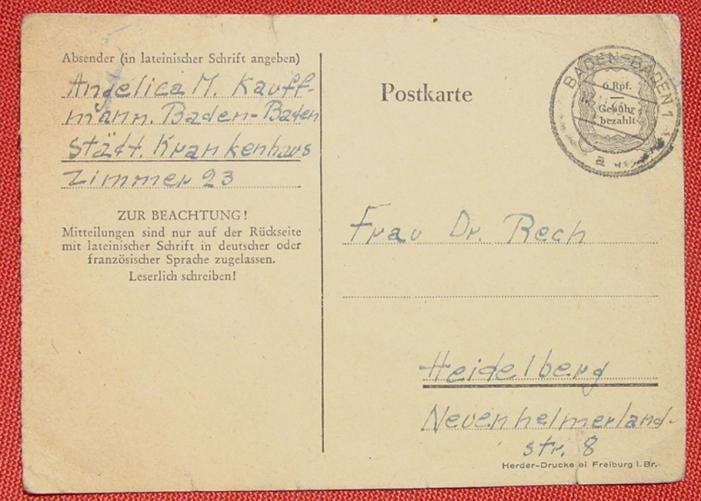 Absender (in lateinischer Schrift angeben)
Angelica M. Kauff-
mann. Baden-Baden
Städt. Krankenhaus
Zimmer 23
ZUR BEACHTUNG!
Mitteilungen sind nur auf der Rückseite
mit lateinischer Schrift in deutscher oder
französischer Sprache zugelassen.
Leserlich schreiben!
Postkarte
BADEN-BADEN 1
a
6 Rpf.
Gebühr
bezahlt
Frau Dr. Rech
Heidelberg
Neuenheimerland-
str. 8
Herder-Druckerei Freiburg i. Br.